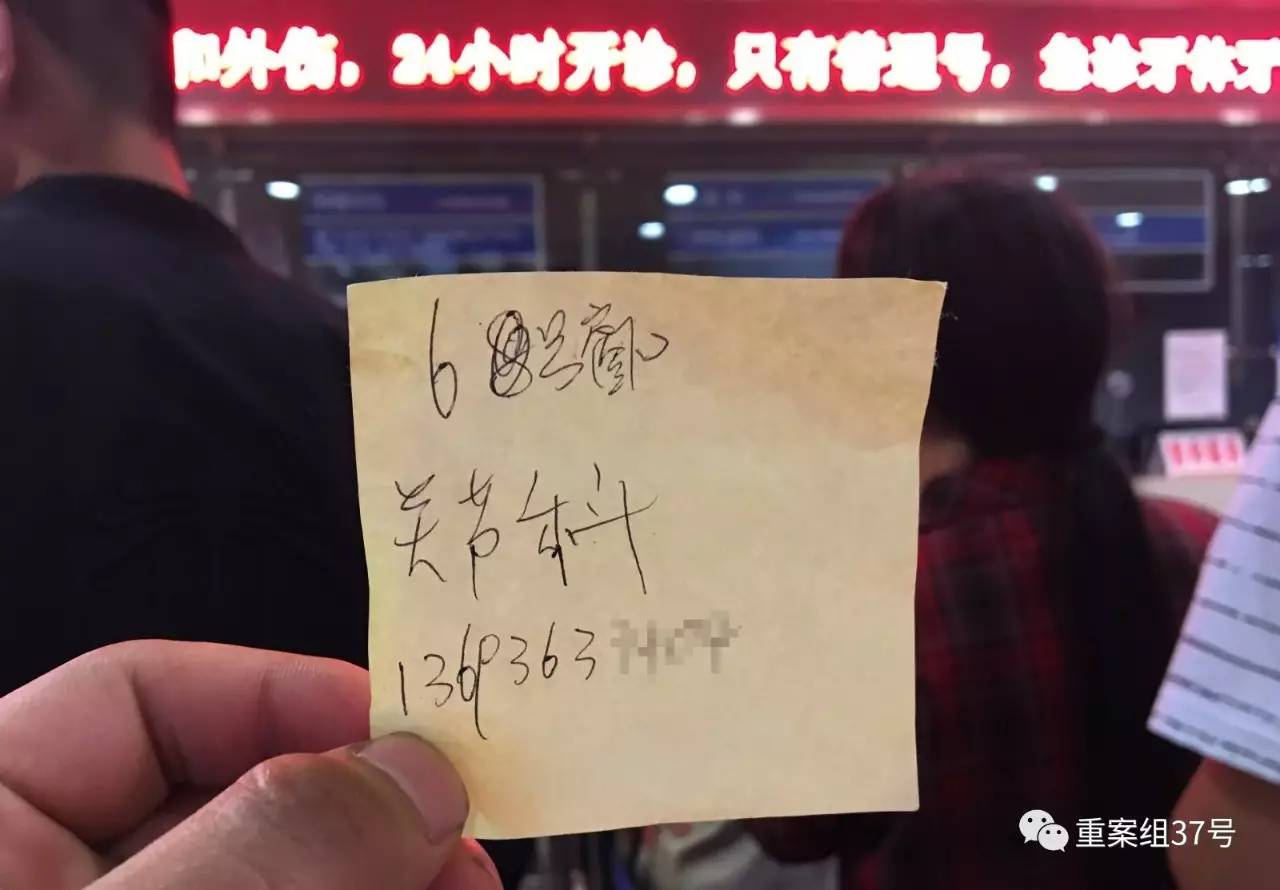 和外伤，24小时开诊，只有普通号，急诊牙体牙
6号窗口
关节科
1369363
重案组37号